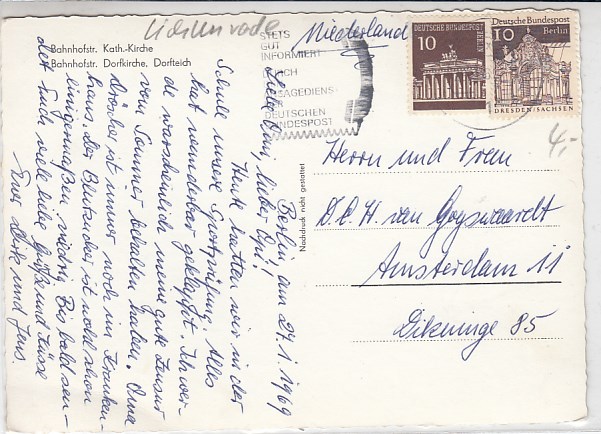 Lichtenrade
Bahnhofstr. Kath.-Kirche
Bahnhofstr. Dorfkirche, Dorfteich
STETS
GUT
INFORMIERT
DURCH
ANSAGEDIENST
DER
DEUTSCHEN
BUNDESPOST
Niederlande
DEUTSCHE BUNDESPOST
BERLIN
10
Deutsche Bundespost
10
Berlin
DRESDEN/SACHSEN
4,-
Nachdruck nicht gestattet
Berlin, am 27.1.1969
Liebe Omi, lieber Opi!
Heute hatten wir in der
Schule unsere Sportprüfung. Alles
hat wunderbar geklappt. Ich wer-
de warscheinlich meine gute Zensur
vom Sommer behalten haben. Oma
Dörchel ist immer noch im Kranken-
haus. Der Blutzucker ist wohl schon
einigermaßen niedrig. Bis bald sen-
det Euch viele liebe Grüße und Küsse
Eure Dörte und Jens.
Herrn und Frau
D.C.H. van Goyswaardt
Amsterdam 11
Dikninge 85